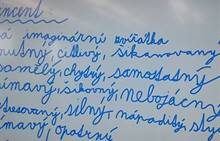 incent:
á imaginární zvířátka
nutný, citlivý, šikanovaný
samělý, chytrý, samostatný
ímavý, šikovný, nebojácný
stresovaný, silný, nápaditý, sty
ímavý, opatrný